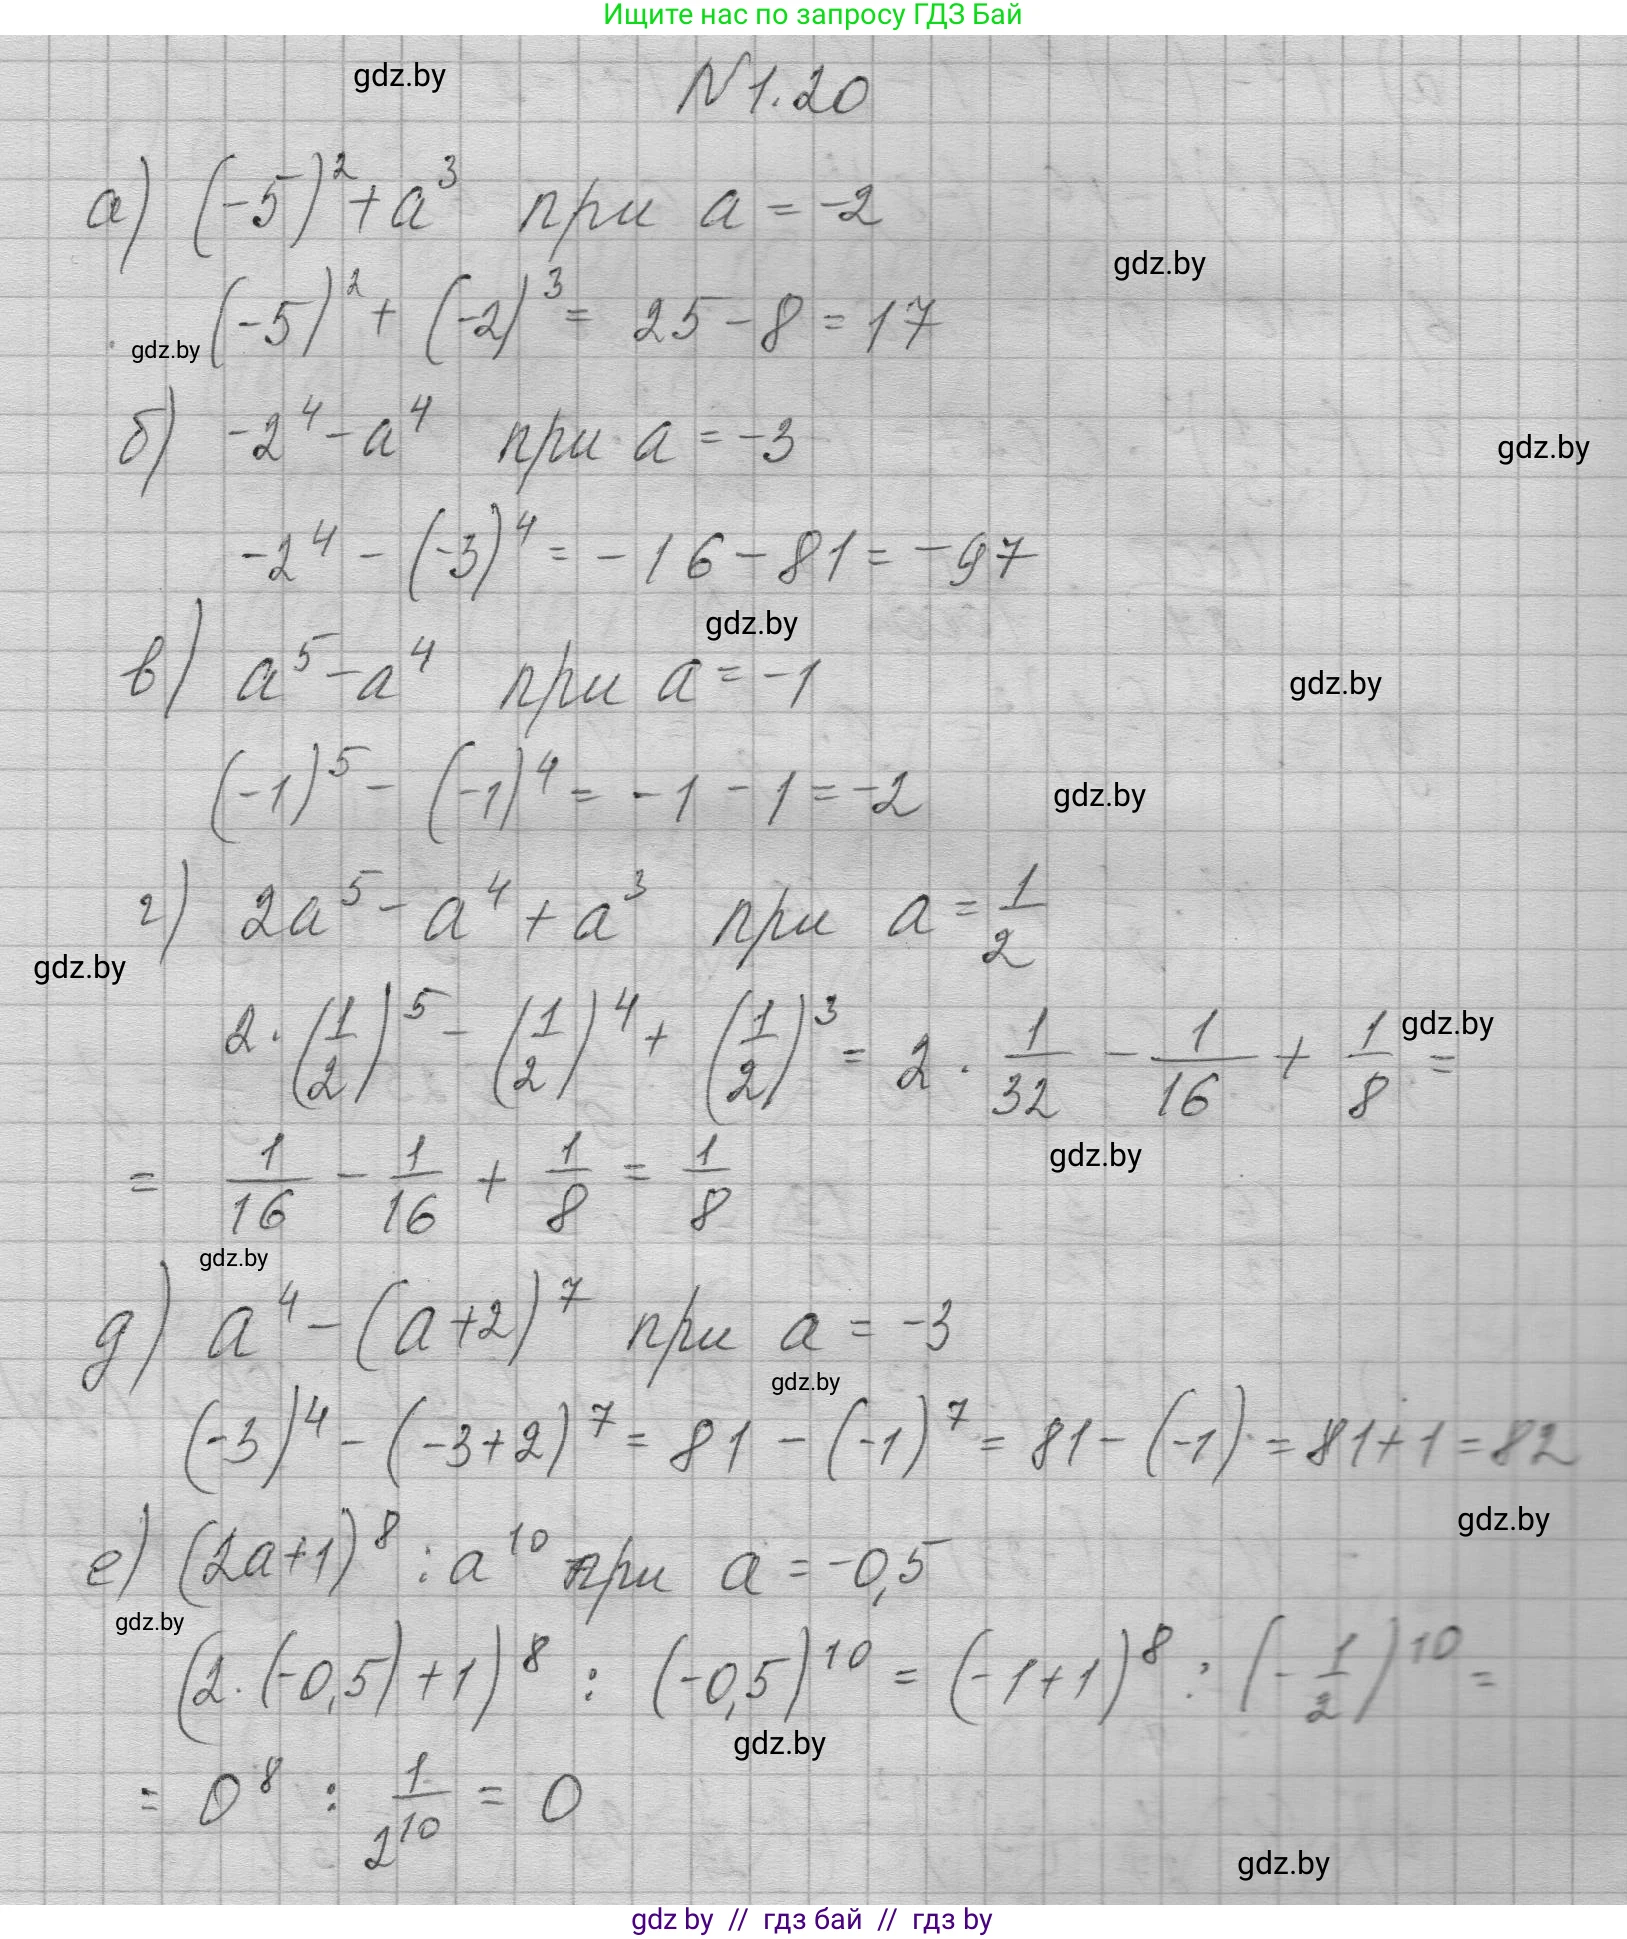 Ищите нас по запросу ГДЗ Бай
gdz.by
N 1.20
а) (-5)² + a³ при a = -2
gdz.by
(-5)² + (-2)³ = 25 - 8 = 17
gdz.by
б) -2⁴ - a⁴ при a = -3
gdz.by
-2⁴ - (-3)⁴ = -16 - 81 = -97
gdz.by
в) a⁵ - a⁴ при a = -1
gdz.by
(-1)⁵ - (-1)⁴ = -1 - 1 = -2
gdz.by
г) 2a⁵ - a⁴ + a³ при a = 1/2
gdz.by
2 · (1/2)⁵ - (1/2)⁴ + (1/2)³ = 2 · 1/32 - 1/16 + 1/8 =
gdz.by
= 1/16 - 1/16 + 1/8 = 1/8
gdz.by
gdz.by
д) a⁴ - (a+2)⁷ при a = -3
gdz.by
(-3)⁴ - (-3+2)⁷ = 81 - (-1)⁷ = 81 - (-1) = 81 + 1 = 82
gdz.by
е) (2a+1)⁸ : a¹⁰ при a = -0,5
gdz.by
(2·(-0,5)+1)⁸ : (-0,5)¹⁰ = (-1+1)⁸ : (-1/2)¹⁰ =
gdz.by
= 0⁸ : 1/2¹⁰ = 0
gdz.by
gdz by // гдз бай // гдз by